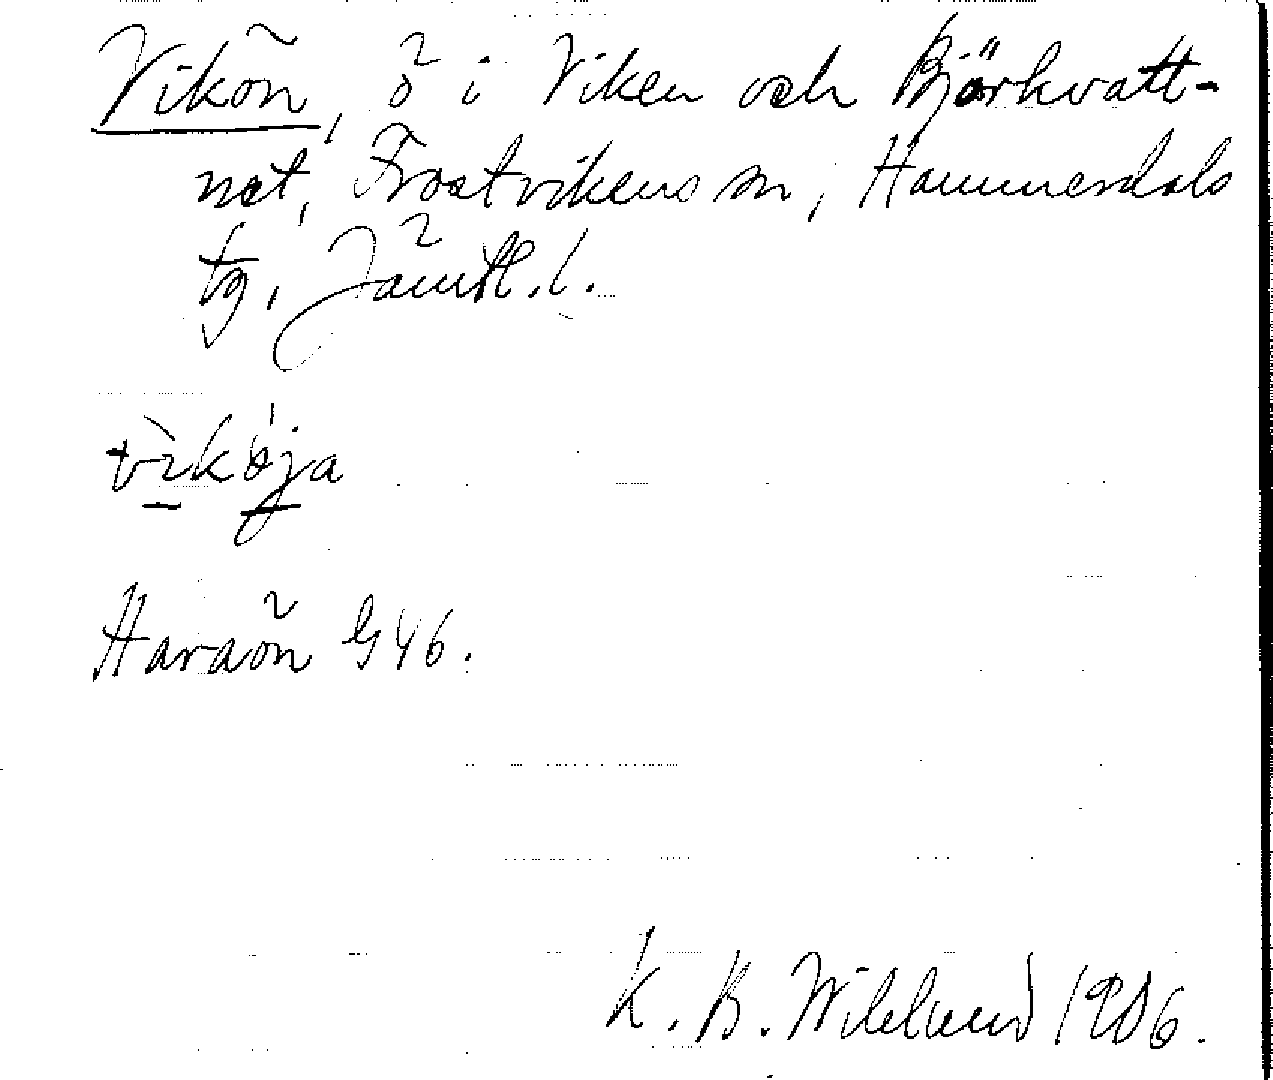 Vikön, ö i Viken och Björkvatt-
net, Frostvikens sn, Hammerdals
tg, Jämtl. l.
vìkø̀ja
Haraön G46.
K. B. Wiklund 1906.